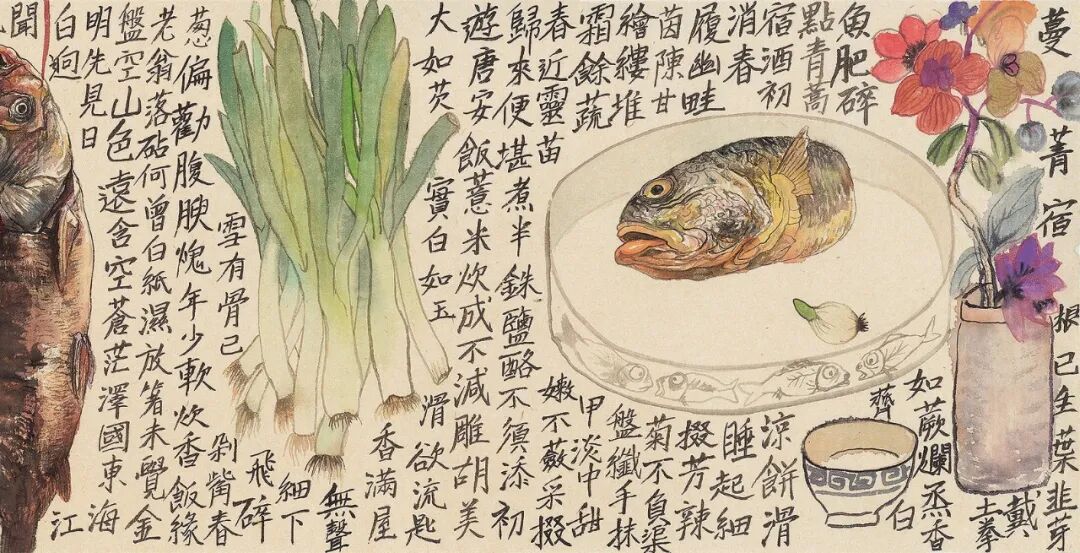 蔓菁宿根已生葉韭芽
戴
土拳
如蕨爛烝香
薺白
魚肥碎
點青蒿涼餅滑
宿酒初
消春睡起細
履幽畦掇芳辣
茵陳甘菊不負渠
繪縷堆盤纖手抹
霜餘蔬甲淡中甜
春近靈苗嫩不蘞采掇
歸來便堪煮半銖鹽酪不須添初
遊唐安飯薏米炊成不減雕胡美
大如芡實白如玉滑欲流匙
香滿屋
無聲
細下
飛碎
雪有骨已
剁觜春
葱偏勸腹腴愧年少軟炊香飯緣
老翁落砧何曾白紙濕放箸未覺金
盤空山色遠含空蒼茫澤國東海
明先見日江
白迥
聞